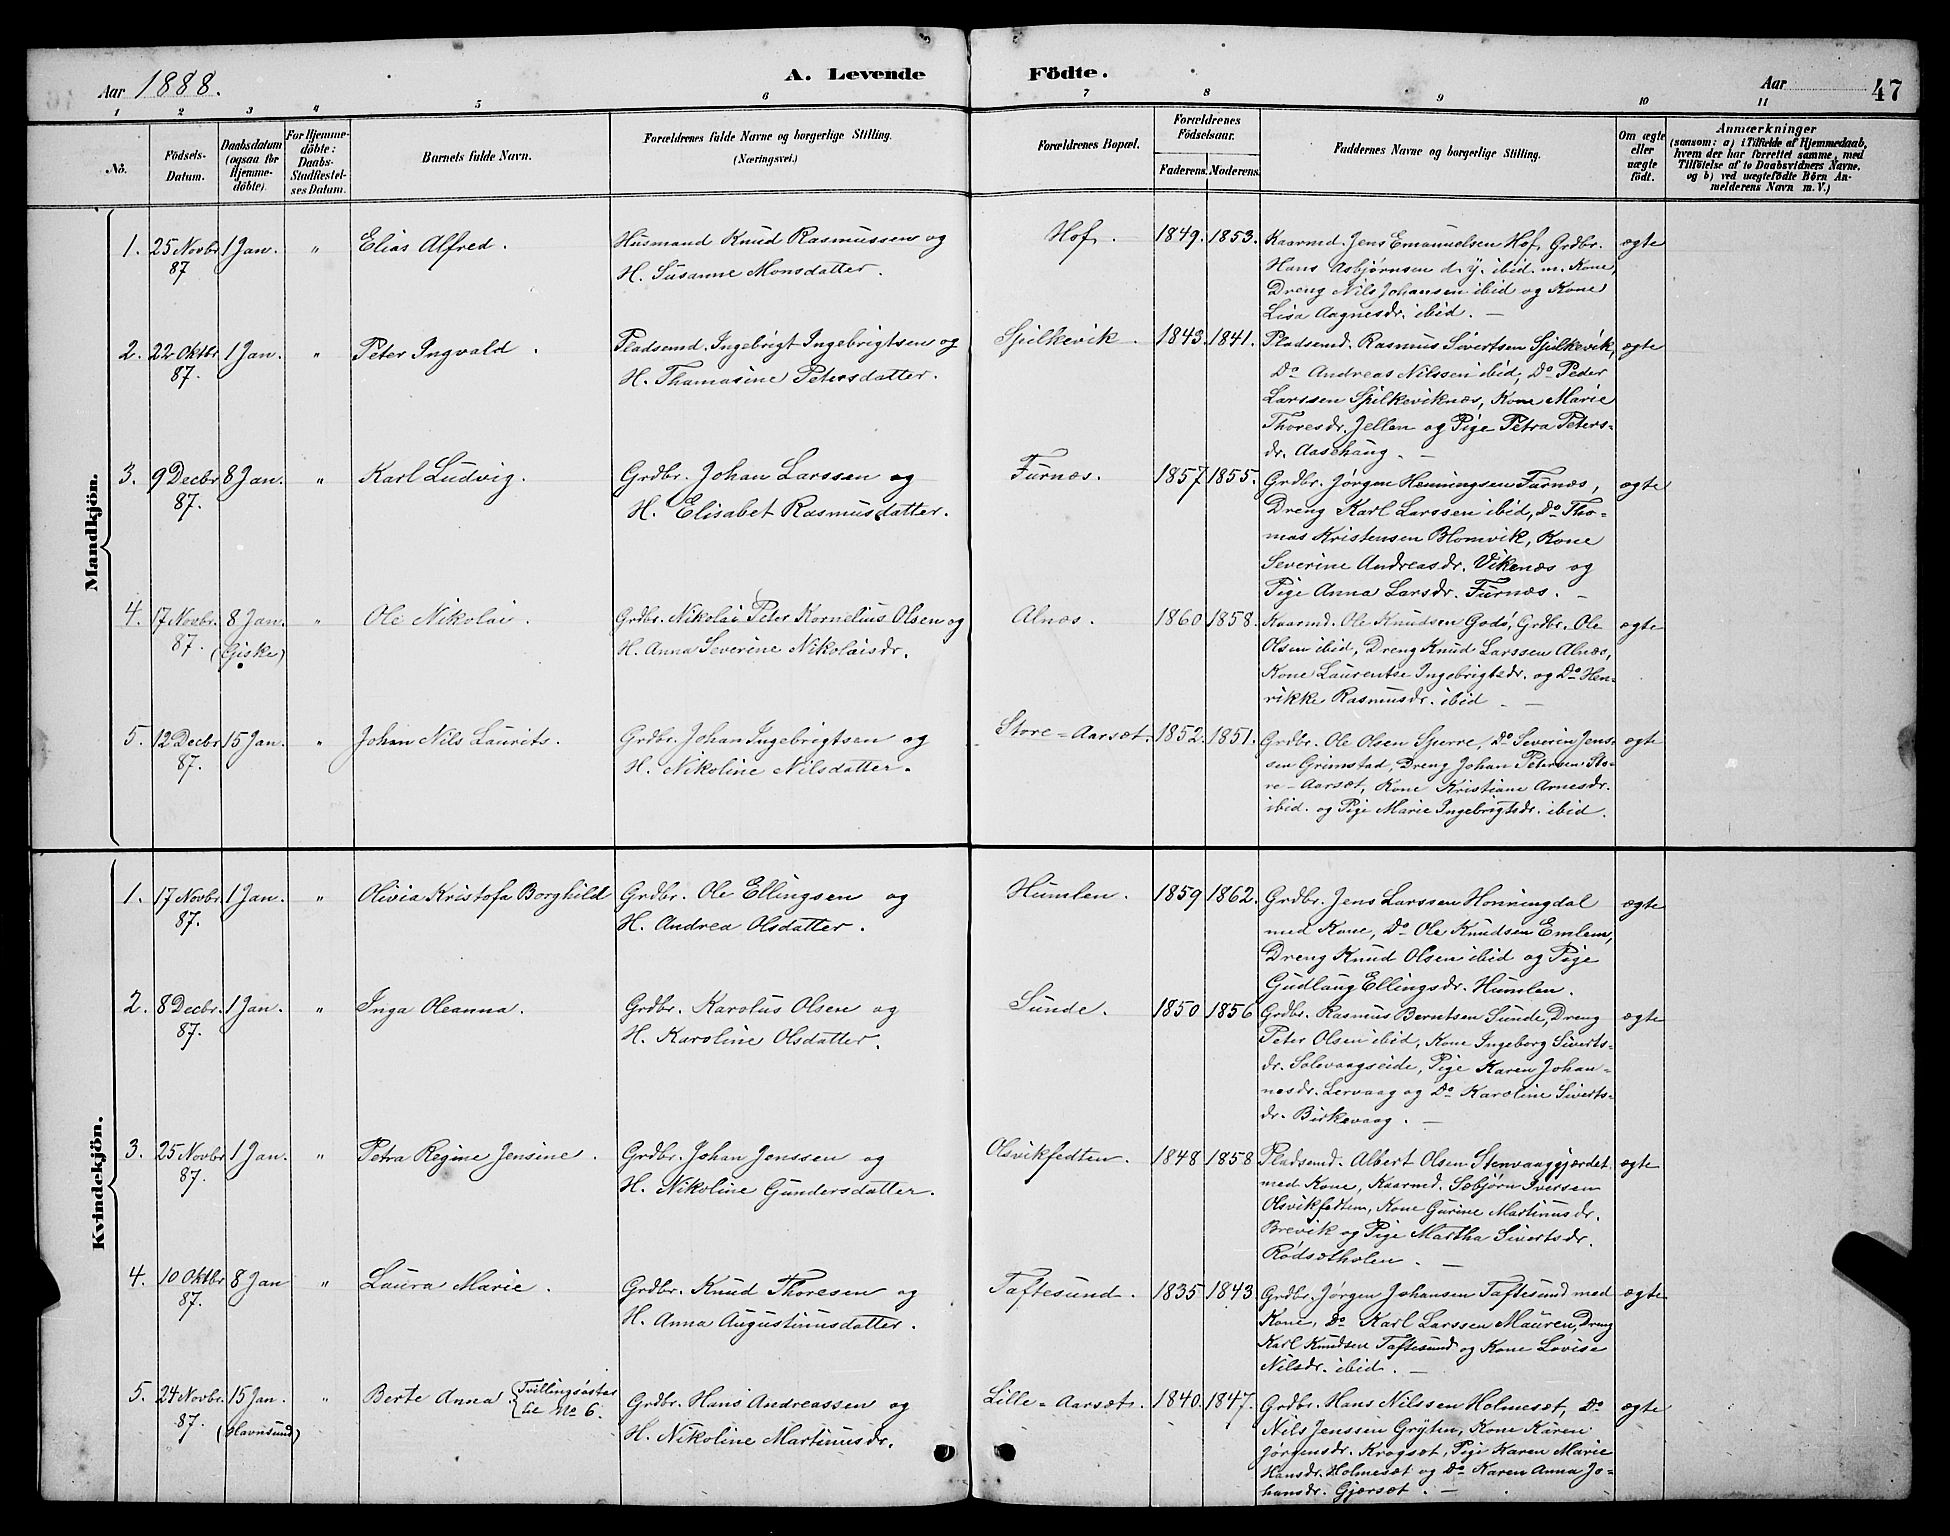 Aar 1888.
A. Levende Födte.
Aar
47
1 2 3 4 5 6 7 8 9 10 11
No.
Födsels-
Datum.
Daabsdatum
(ogsaa for
Hjemme-
döbte).
For Hjemme-
döbte:
Daabs-
Stadfæstel-
ses Datum.
Barnets fulde Navn.
Forældrenes fulde Navne og borgerlige Stilling.
(Næringsvei.)
Forældrenes Bopæl.
Forældrenes
Födselsaar.
Faderens. Moderens.
Faddernes Navne og borgerlige Stilling.
Om ægte
eller
uægte
födt.
Anmærkninger
(saasom: a) i Tilfælde af Hjemmedaab,
hvem der har forrettet samme, med
Tilföielse af to Daabsvidners Navne,
og b) ved uægtefödte Börn An-
melderens Navn m. V.)
Mandkjön.
1. 25 Novbr 87 1 Jan. " Elias Alfred. Husmand Knud Rasmussen og
H. Susanne Monsdatter.
Hof. 1849. 1853. Kaarmd. Jens Emanuelsen Hof, Grdbr. ægte
Hans Asbjørnsen d. y. ibid. m. Kone,
Dreng Nils Johansen ibid og Kone
Lisa Aagnesdr. ibid. —
2. 22 Oktbr 87. 1 Jan. " Peter Ingvald. Pladsmd. Ingebrigt Ingebrigtsen og
H. Thomasine Petersdatter.
Spilkevik. 1843. 1841. Pladsmd. Rasmus Sivertsen Spilkevik, ægte
Do Andreas Nilssen ibid, Do Peder
Larssen Spilkeviknæs, Kone Marie
Thoresdr. Jellen og Pige Petra Peters-
dr. Aasehaug. —
3. 9 Decbr 87. 8 Jan. " Karl Ludvig. Grdbr. Johan Larssen og
H. Elisabet Rasmusdatter.
Furnæs. 1857 1855. Grdbr. Jørgen Henningsen Furnæs, ægte
Dreng Karl Larssen ibid, Do Tho-
mas Kristensen Blomvik, Kone
Severine Andreasdr. Vikenæs og
Pige Anna Larsdr. Furnæs. —
4. 17 Novbr. 87. 8 Jan. (Giske) " Ole Nikolai. Grdbr. Nikolai Peter Kornelius Olsen og
H. Anna Severine Nikolaisdr.
Alnæs. 1860 1858. Kaarmd. Ole Knudsen Godö, Grdbr. Ole ægte
Olsen ibid, Dreng Knud Larssen Alnæs,
Kone Laurentse Ingebrigtsdr. og Do Hen-
rikke Rasmusdr. ibid —
5. 12 Decbr 87. 15 Jan. " Johan Nils Laurits. Grdbr. Johan Ingebrigtsen og
H. Nikoline Nilsdatter.
Store-Aarsæt. 1852. 1851. Grdbr. Ole Olsen Spurre, Do Severin Jens- ægte
sen Grimstad, Dreng Johan Petersen Sto-
re-Aarsæt, Kone Kristiane Arnesdr.
ibid. og Pige Marie Ingebrigtsdr. ibid.
Kvindekjön.
1. 17 Novbr 87. 1 Jan. " Olivia Kristofa Borghild Grdbr. Ole Ellingsen og
H. Andrea Olsdatter.
Humlen. 1859 1862. Grdbr. Jens Larssen Honningdal ægte
med Kone, Do Ole Knudsen Emlem,
Dreng Knud Olsen ibid og Pige
Gudlaug Ellingsdr. Humlen.
2. 8 Decbr. 87. 1 Jan. " Inga Oleanna. Grdbr. Karolus Olsen og
H. Karoline Olsdatter.
Sunde. 1850 1856 Grdbr. Rasmus Berntsen Sunde, Dreng ægte
Peter Olsen ibid, Kone Ingeborg Siverts-
dr. Solevaagseide, Pige Karen Johan-
nesdr. Lervaag og Do Karoline Siverts-
dr. Birkevaag. —
3. 25 Novbr 87. 1 Jan. " Petra Regine Jensine. Grdbr. Johan Jenssen og
H. Nikoline Gundersdatter.
Olsvikfedten. 1848 1858 Pladsmd. Albert Olsen Stenvaaggjærdet ægte
med Kone, Kaarmd. Sebjørn Iversen
Olsvikfedten, Kone Gurine Martinusdr.
Brevik og Pige Martha Sivertsdr.
Rödsætholen. —
4. 10 Oktbr 87. 8 Jan " Laura Marie. Grdbr. Knud Thoresen og
H. Anna Augustinusdatter.
Taftesund. 1835 1843 Grdbr. Jørgen Johansen Taftesund med ægte
Kone, Do Karl Larssen Mauren, Dreng
Karl Knudsen Taftesund og Kone Lovise
Nilsdr. ibid. —
5. 24 Novbr. 87. 15 Jan. (Havnsund) " Berte Anna. (Tvillingsöster til No 6. Grdbr. Hans Andreassen og
H. Nikoline Martinusdr.
Lille-Aarsæt. 1840. 1847. Grdbr. Hans Nilssen Holmesæt, Do ægte
Nils Jenssen Grýten, Kone Karen
Jørgensdr. Krogsæt, Pige Karen Marie
Hansdr. Holmesæt og Do Karen Anna Jo-
hansdr. Gjærsæt. —